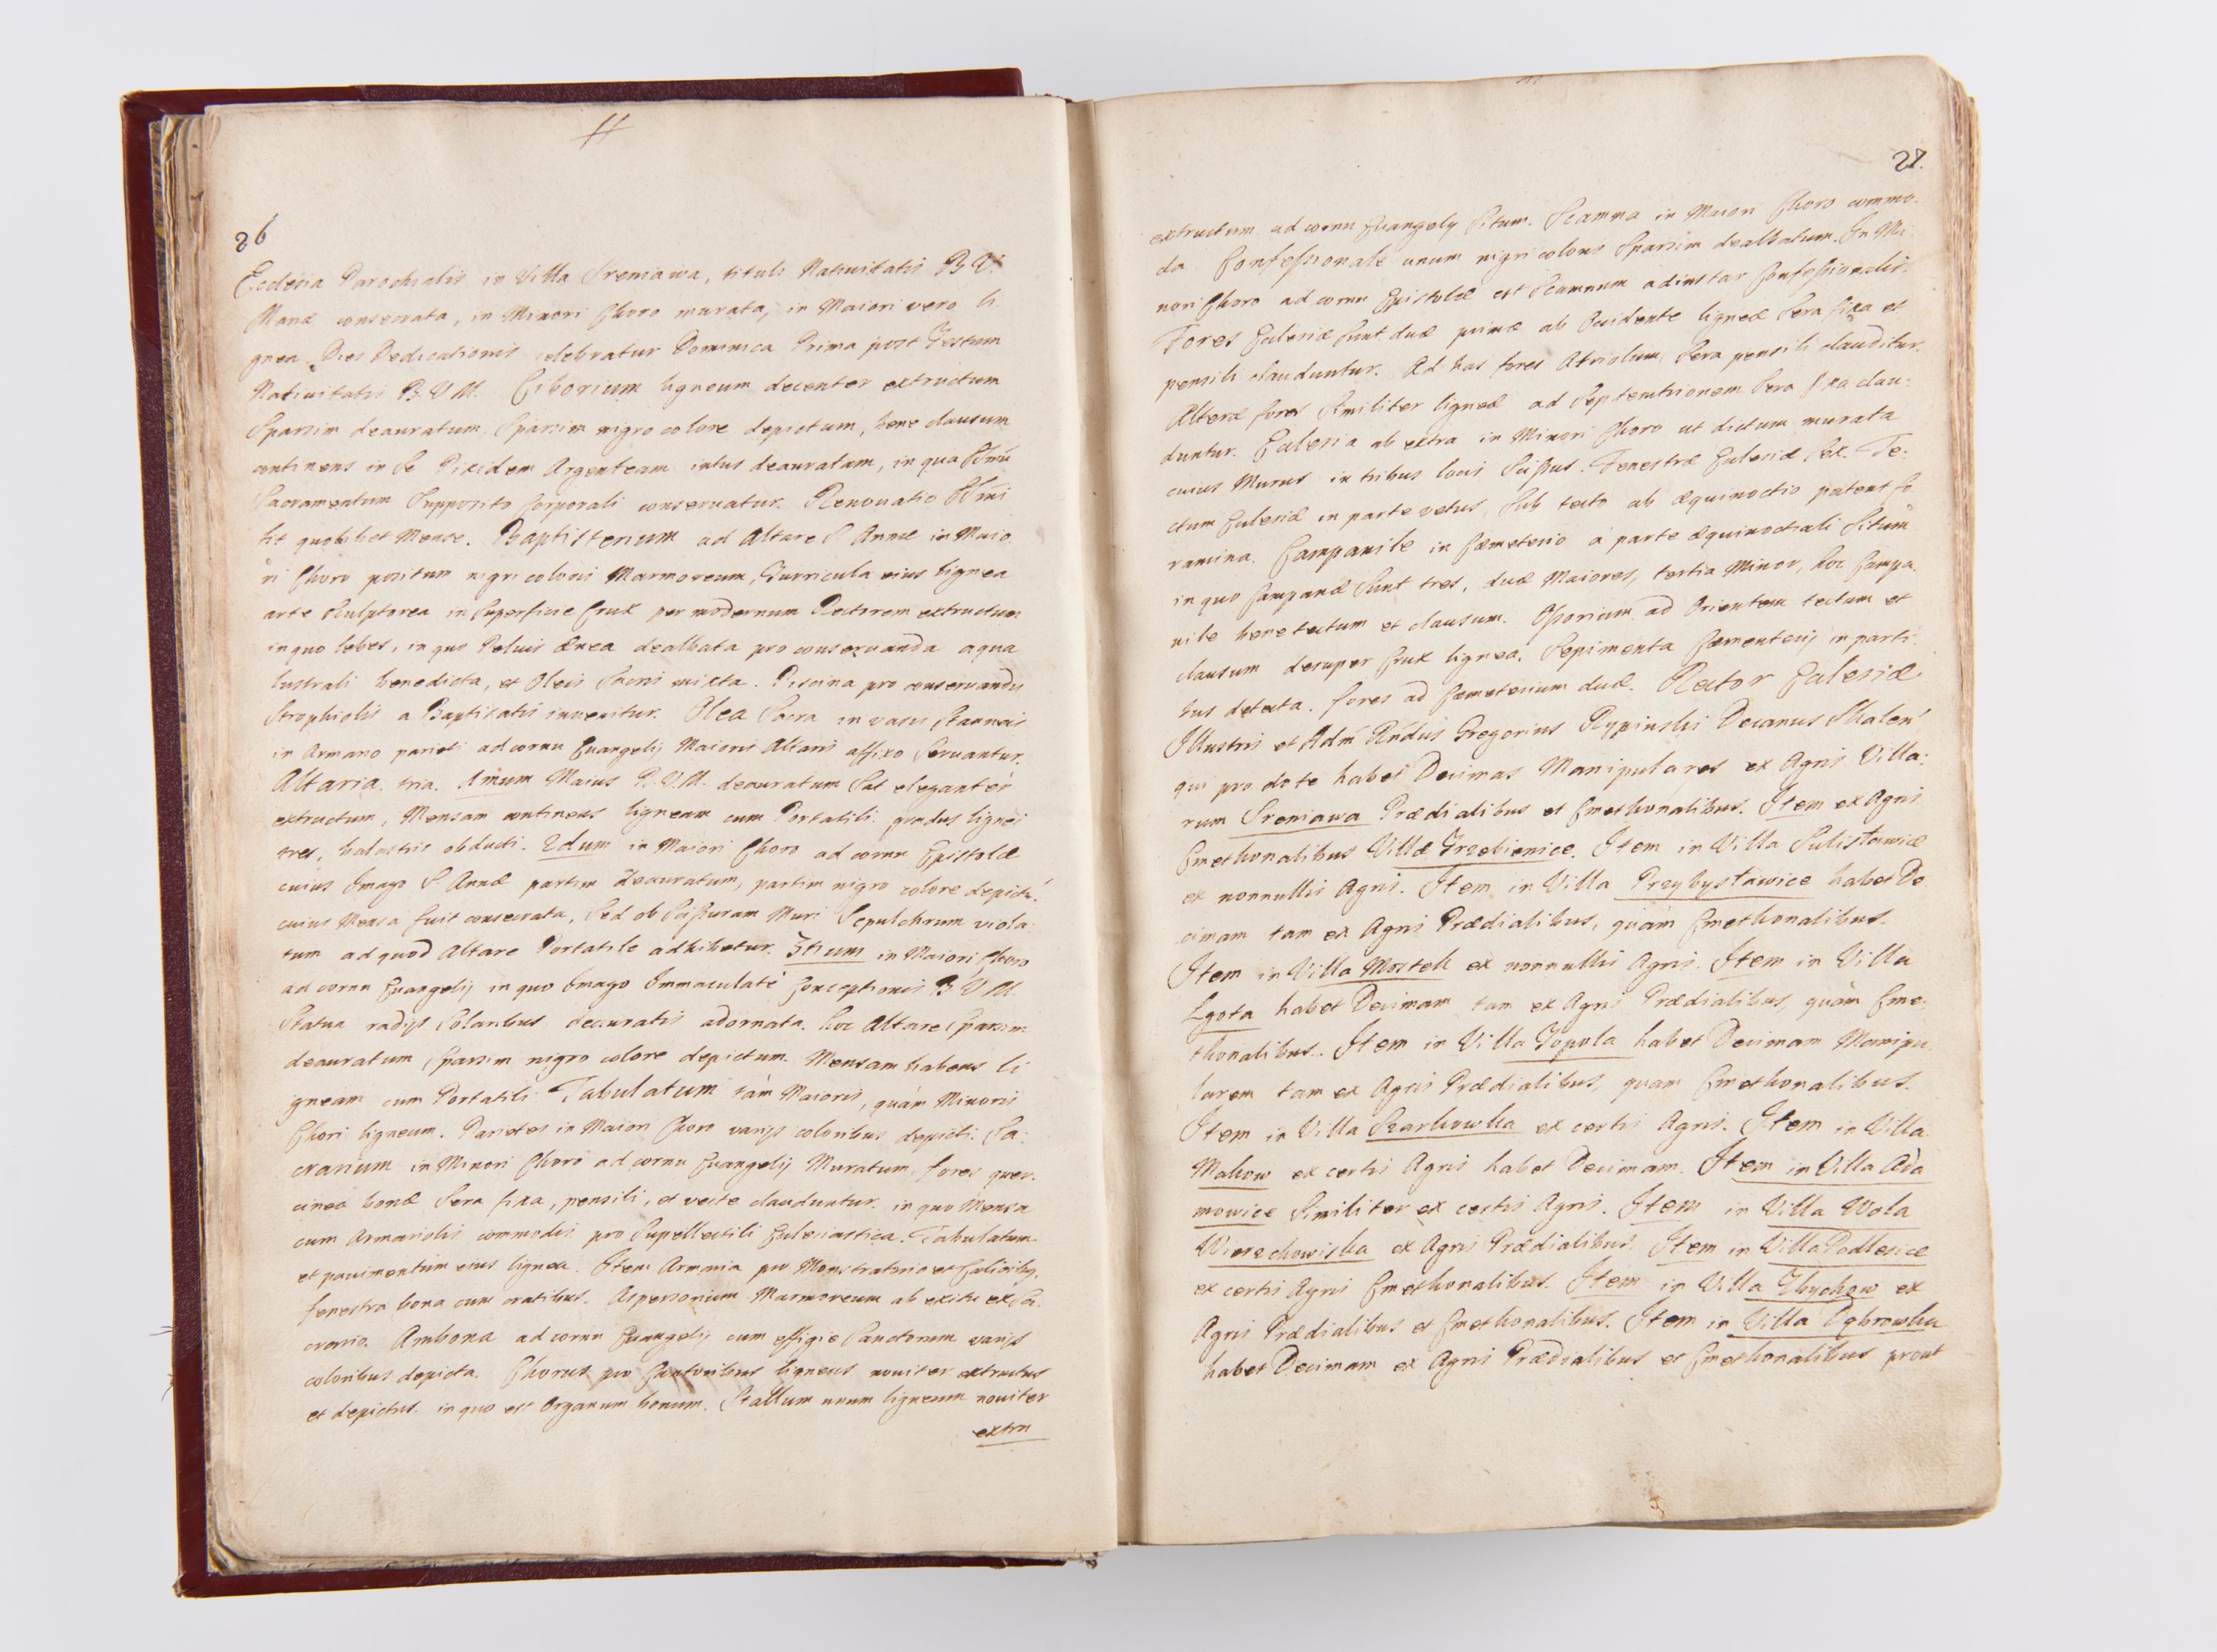 26
Ecclesia Parochialis in Villa Sreniawa, tituli Natiuitatis B. V.
Mariæ consecrata, in Minori Choro murata, in Maiori vero li
gnea. Dies Dedicationis celebratur Dominica Prima post Festum
Natiuitatis B. V. M. Ciborium ligneum decenter extructum
Sparsim deauratum, Sparsim nigro colore depictum, bene clausum
continens in Se Pixidem Argenteam intus deauratam, in qua SSmũ
Sacramentum Supposito Corporali conseruatur. Renouatio SSmi
fit quolibet Mense. Baptisterium ad Altare S. Annæ in Maio
ri Choro positum nigri coloris Marmoreum, Turricula eius lignea
arte Sculptorea in Superficie Crux per modernum Rectorem extructum
in quo lebes, in quo Peluis ænea dealbata pro conseruanda aqua
lustrali benedicta, et Oleis Sacris mixta. Piscina pro conseruandis
Strophiolis a Baptisatis inuenitur. Olea Sacra in vasis Stanneis
in Armario parieti ad cornu Euangelij Maioris Altaris affixo Seruantur.
Altaria tria. 1mum Maius B. V. M. deauratum Sat eleganter
extructum, Mensam continens ligneam cum Portatili. gradus lignei
tres, balustris obducti. 2dum in Maiori Choro ad cornu Epistolæ
cuius Imago S. Annæ partim deauratum, partim nigro colore depictũ.
cuius Mensa fuit consecrata, Sed ob Scissuram Muri Sepulchrum viola
tum ad quod Altare Portatile adhibetur. 3tium in Maiori Choro
ad cornu Euangelij in quo Imago Immaculatè Conceptionis B. V. M.
Statua radijs Solaribus deauratis adornata. hoc Altare Sparsim
deauratum Sparsim nigro colore depictum. Mensam habens li
igneam cum Portatili. Tabulatum tàm Maioris, quàm Minoris
Chori ligneum. Parietes in Maiori Choro varijs coloribus depicti. Sa:
crarium in Minori Choro ad cornu Euangelij Muratum, fores quer:
cinea bonæ Sera fixa, pensili, et vecte clauduntur. in quo Mensa
cum Armariolis commodis pro Supellectili Eclesiastica. Tabulatum
et pauimentum eius lignea. Item Armaria pro Monstratorio et Calicibus,
fenestra bona cum cratibus. Aspersorium Marmoreum ab exitu ex Sa
crario. Ambona ad cornu Euangelij cum effigie Sanctorum varijs
coloribus depicta. Chorus pro Cantoribus ligneus nouiter extructus
et depictus. in quo est Organum bonum. Stallum unum ligneum nouiter
extru
27.
extructum ad cornu Euangelij Situm. Scamna in Maiori Choro commo:
da. Confessionale unum nigri coloris Sparsim dealbatum. In Mi
nori Choro ad cornu Epistolæ est Scamnum adinstar Confessionalis.
Fores Eclesiæ Sunt duæ primæ ab Occidente ligneæ Sera fixa et
pensili clauduntur. Ad has fores Atriolum Sera pensili clauditur.
Alteræ fores Similiter ligneæ ad Septemtrionem Sera fixa clau:
duntur. Eclesia ab extra in Minori Choro ut dictum murata
cuius Murus in tribus locis Scissus. Fenestræ Eclesiæ Sex. Te:
ctum Eclesiæ in parte vetus, Sub tecto ab æquinoctio patent fo
ramina. Campanile in Cæmeterio à parte æquinoctiali Situm
in quo Campanæ Sunt tres, duæ Maiores, tertia Minor, hoc Campa
nile bene tectum et clausum. Ossorium ad Orientem tectum et
clausum desuper Crux lignea. Sepimenta Cæmenterij in parti
bus detecta. fores ad Cæmeterium duæ. Rector Eclesiæ
Illustris et Adm̃ Rñdus Gregorius Rypinski Decanus Skalen̄
qui pro dote habet Decimas Manipulares ex Agris Villa:
rum Sreniawa Prædialibus et Cmethonalibus. Item ex Agris
Cmethonalibus Villæ Trzebienice. Item in Villa Sulisławice
ex nonnullis Agris. Item in Villa Przybysławice habet De
cimam tam ex Agris Prædialibus, quàm Cmethonalibus.
Item in Villa Mostek ex nonnullis Agris. Item in Villa
Lgota habet Decimam tam ex Agris Prædialibus, quàm Cme:
thonalibus. Item in Villa Topola habet Decimam Manipu
larem tam ex Agris Prædialibus, quam Cmethonalibus.
Item in Villa Szarkowka ex certis Agris. Item in Villa
Makow ex certis Agris habet Decimam. Item in Villa Ada
mowice Similiter ex certis Agris. Item in Villa Wola
Wierzchowiska ex Agris Prædialibus. Item in Villa Podlesice
ex certis Agris Cmethonalibus. Item in Villa Chychow ex
Agris Prædialibus et Cmethonalibus. Item in Villa Dąbrowka
habet Decimam ex Agris Prædialibus et Cmethonalibus prout